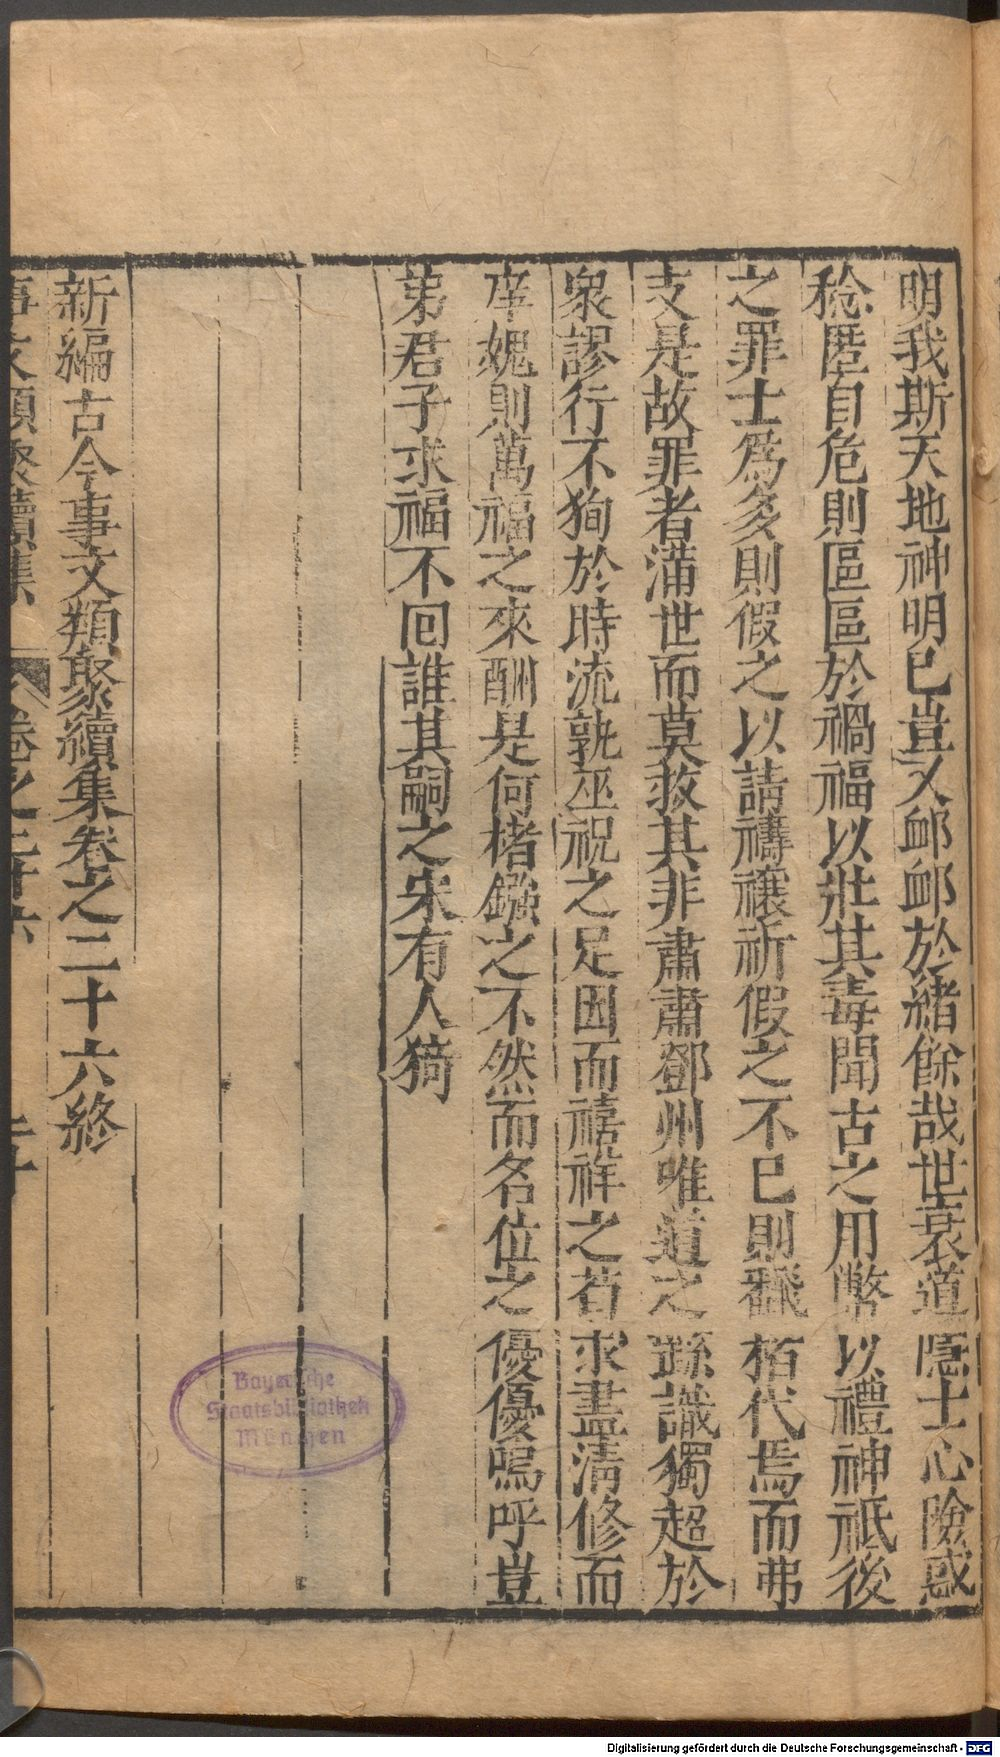 明我斯天地神明已豈又䘏䘏於緒餘哉世衰道隱士心險惑
稔匿自危則區區於禍福以壯其毒聞古之用幣以禮神祇後
之罪士爲多則假之以請禱禳祈假之不已則飜栢代焉而弗
支是故罪者滿世而莫救其非肅肅鄧州唯道之蹈識獨超於
衆謬行不狥於時流孰巫祝之足因而禧祥之苟求盡淸修而
卒媿則萬福之來酬是何楮鏹之不然而名位之優優嗚呼豈
弟君子求福不回誰其嗣之宋有人猗
新編古今事文類聚續集卷之二十六終
事文類聚續集 卷之二十六
Bayerische
Staatsbibliothek
München
Digitalisierung gefördert durch die Deutsche Forschungsgemeinschaft - DFG